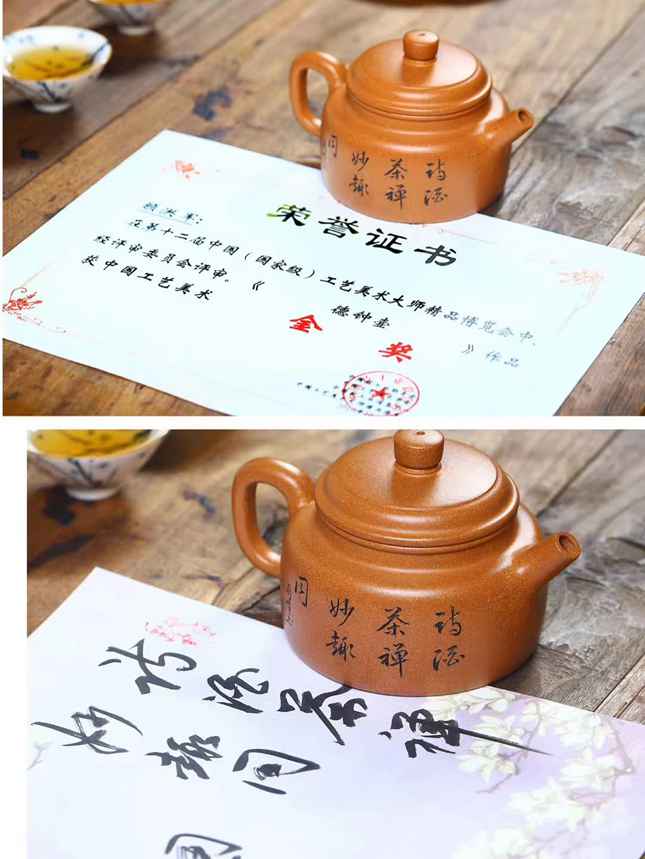 诗酒
茶禅
妙趣
同
荣誉证书
在第十二届中国(国家级)工艺美术大师精品博览会中,
经评审委员会评审。《 德钟壶 》作品
获中国工艺美术 金奖
诗酒
茶禅
妙趣
同
诗酒茶禅
妙趣同